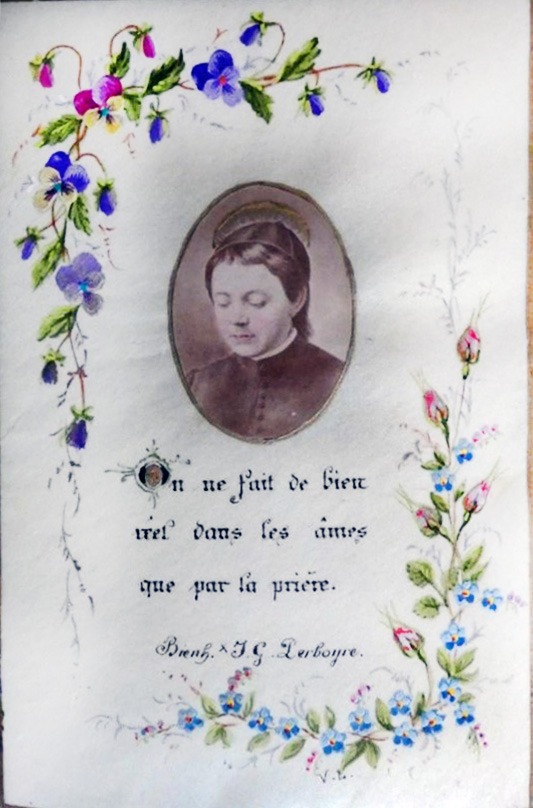 On ne fait de bien
réel dans les âmes
que par la prière.
Bienh. x J. G. Perboyre.
V. L.